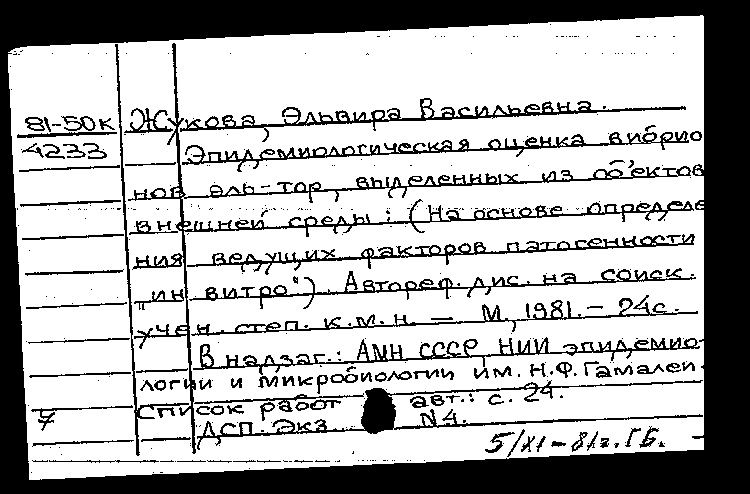 81-50к Жукова, Эльвира Васильевна.
4233 Эпидемиологическая оценка вибрио
нов эль-тор, выделенных из объектов
внешней среды: (На основе определе
ния ведущих факторов патогенности
"ин витро"). Автореф. дис. на соиск.
учен. степ. к.м.н. — М., 1981. – 24с.
В надзаг.: АМН СССР, НИИ эпидемио-
логии и микробиологии им. Н.Ф. Гамалеи.
7 Список работ авт.: с. 24.
ДСП. Экз. N4.
5/XI–81г. ГБ. –